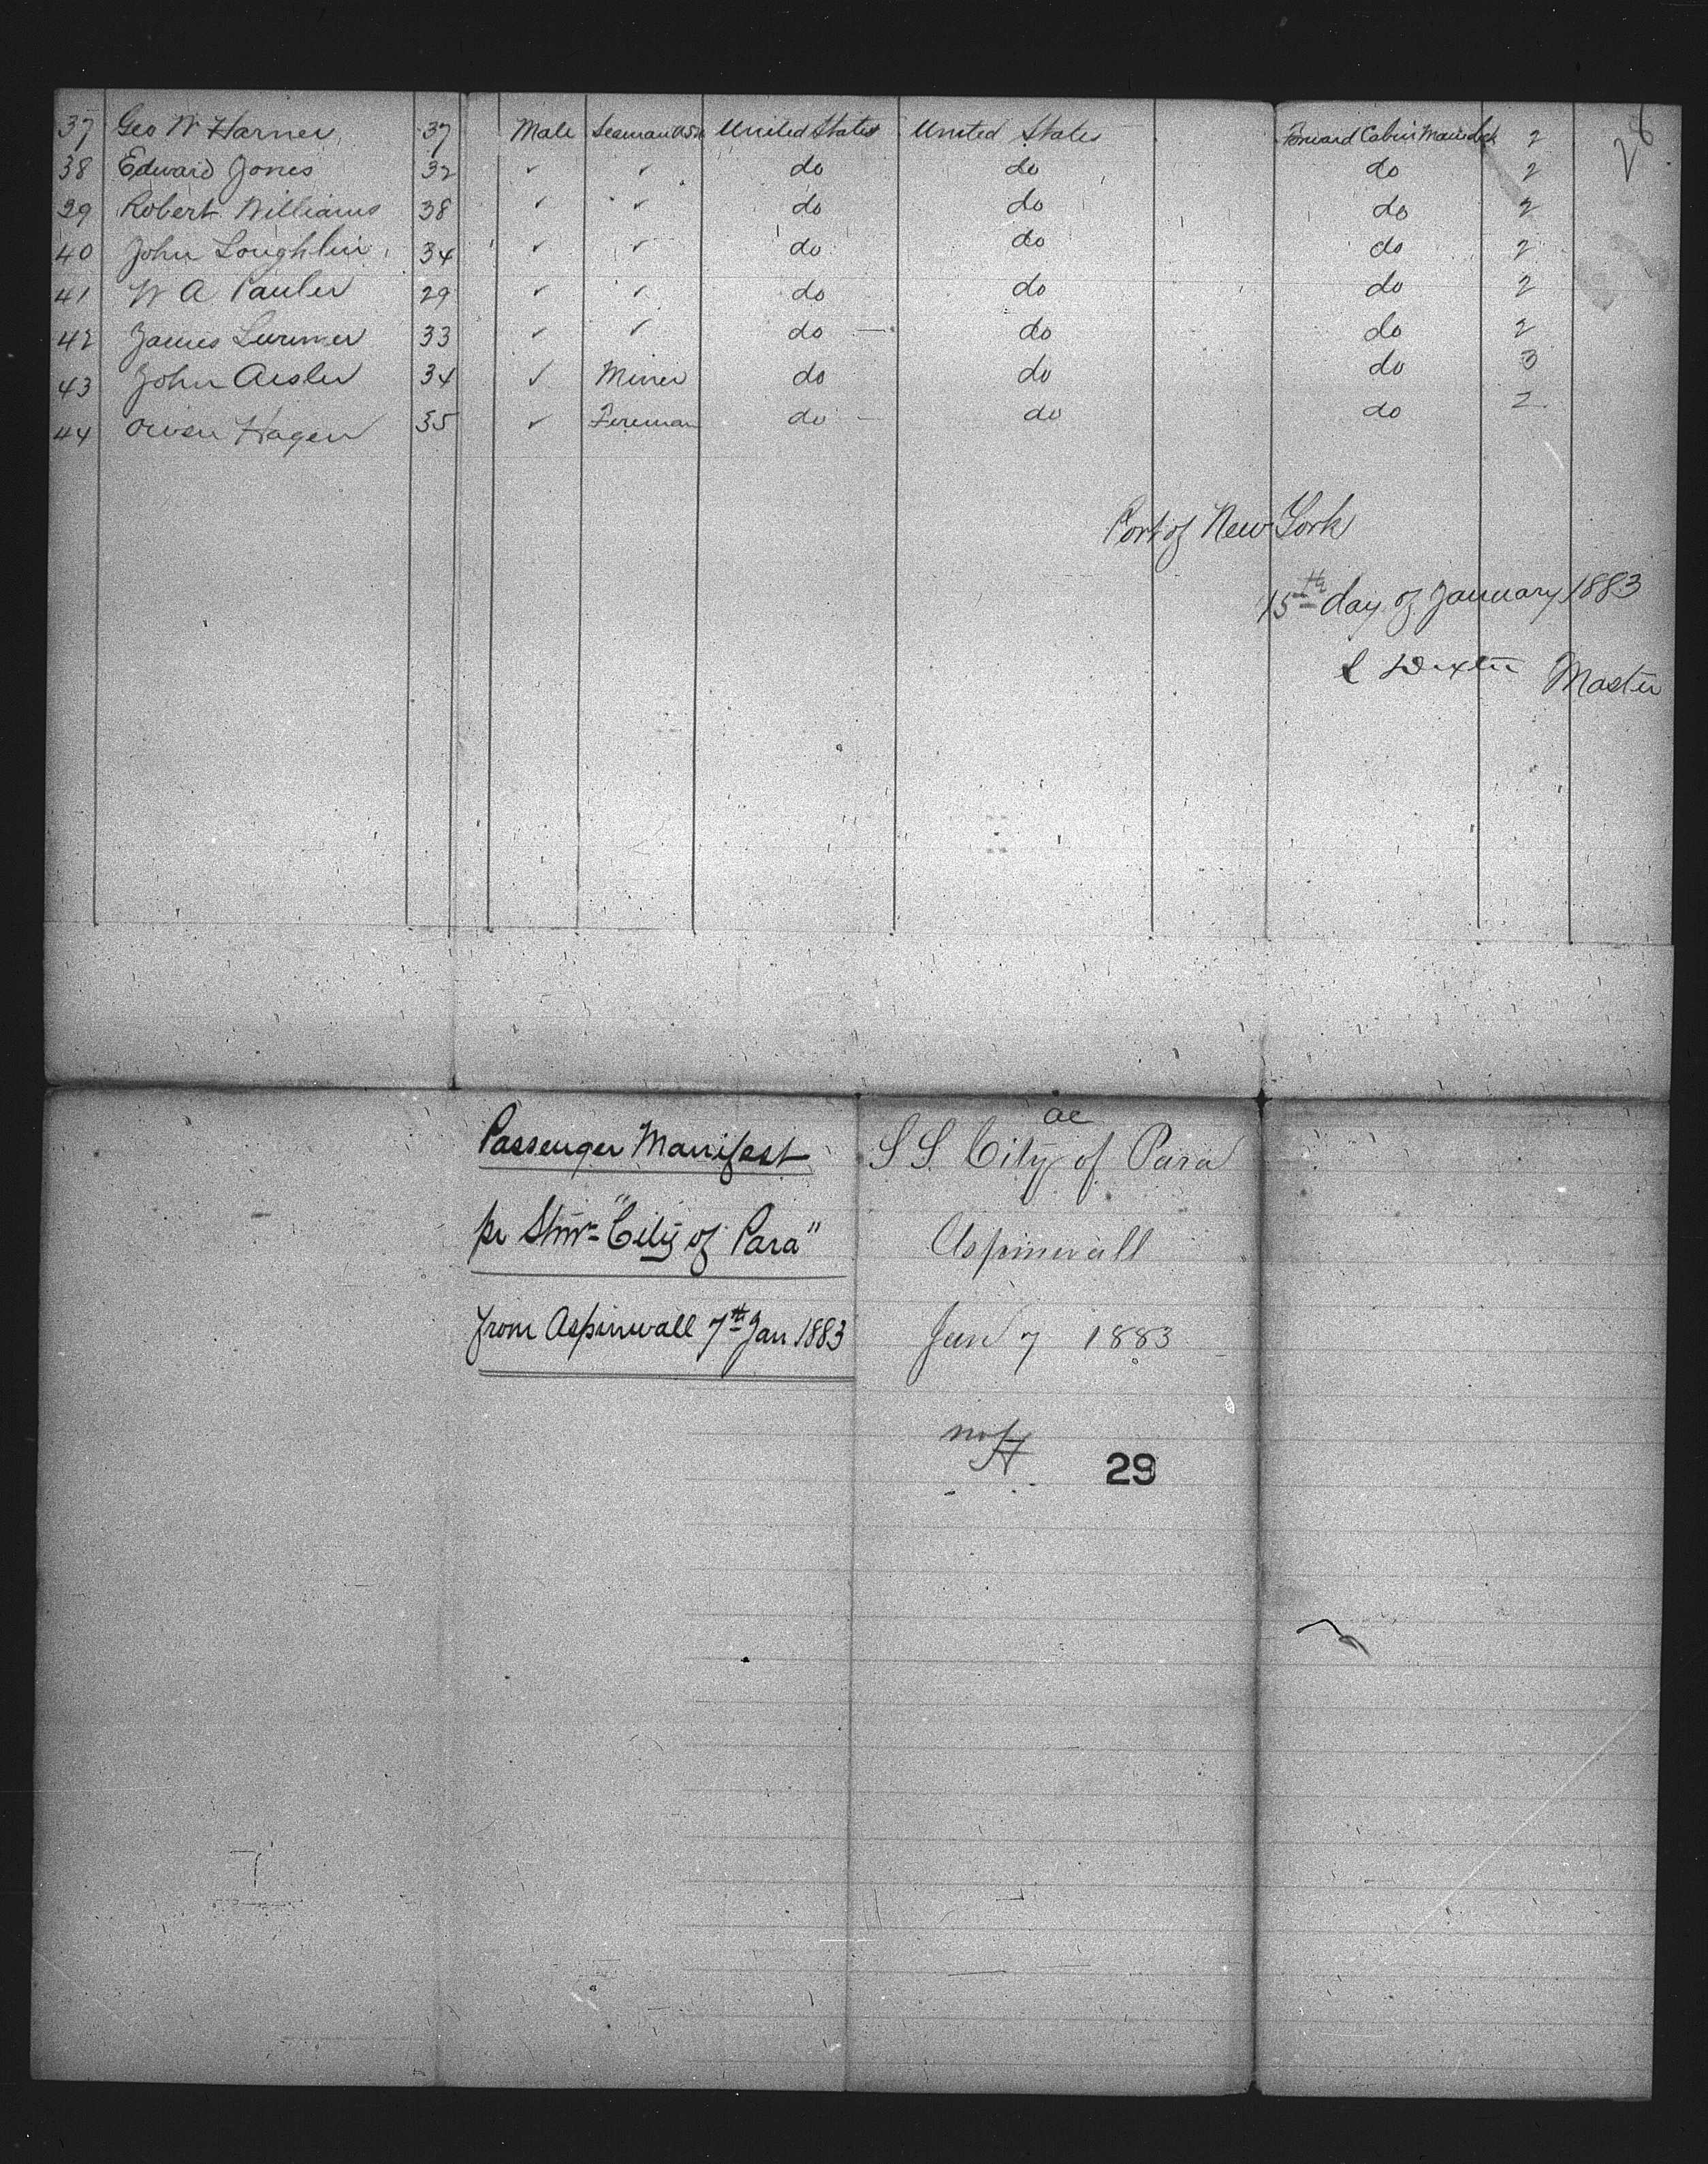 28
37 Geo W Harner 37 Male Seaman USN United States United States Forward Cabin Main deck 2
38 Edward Jones 32 ✓ ✓ do do do 2
39 Robert Williams 38 ✓ ✓ do do do 2
40 John Loughlin 34 ✓ ✓ do do do 2
41 W A 29 ✓ ✓ do do do 2
42 James 33 ✓ ✓ do do do 2
43 John 34 ✓ Miner do do do 3
44 Owen Hagen 35 ✓ Fireman do do do 2
Port of New York
15th day of January 1883
Dexter Master
Passenger Manifest
pr Stmr "City of Para"
from Aspinwall 7th Jan 1883
ae
S S City of Para
Aspinwall
Jan 7 1883
29